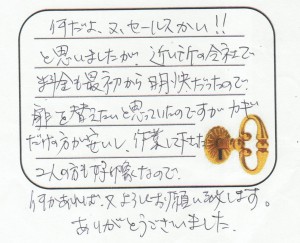 何だよ、又、セールスかい!!
と思いましたが、近い所の会社で
料金も最初から明快だったので
扉を替えたいと思っていたのですがカギ
だけの方が安いし、作業して下さった
2人の方も好印象なので、
何かあれば、又よろしくお願い致します。
ありがとうございました。